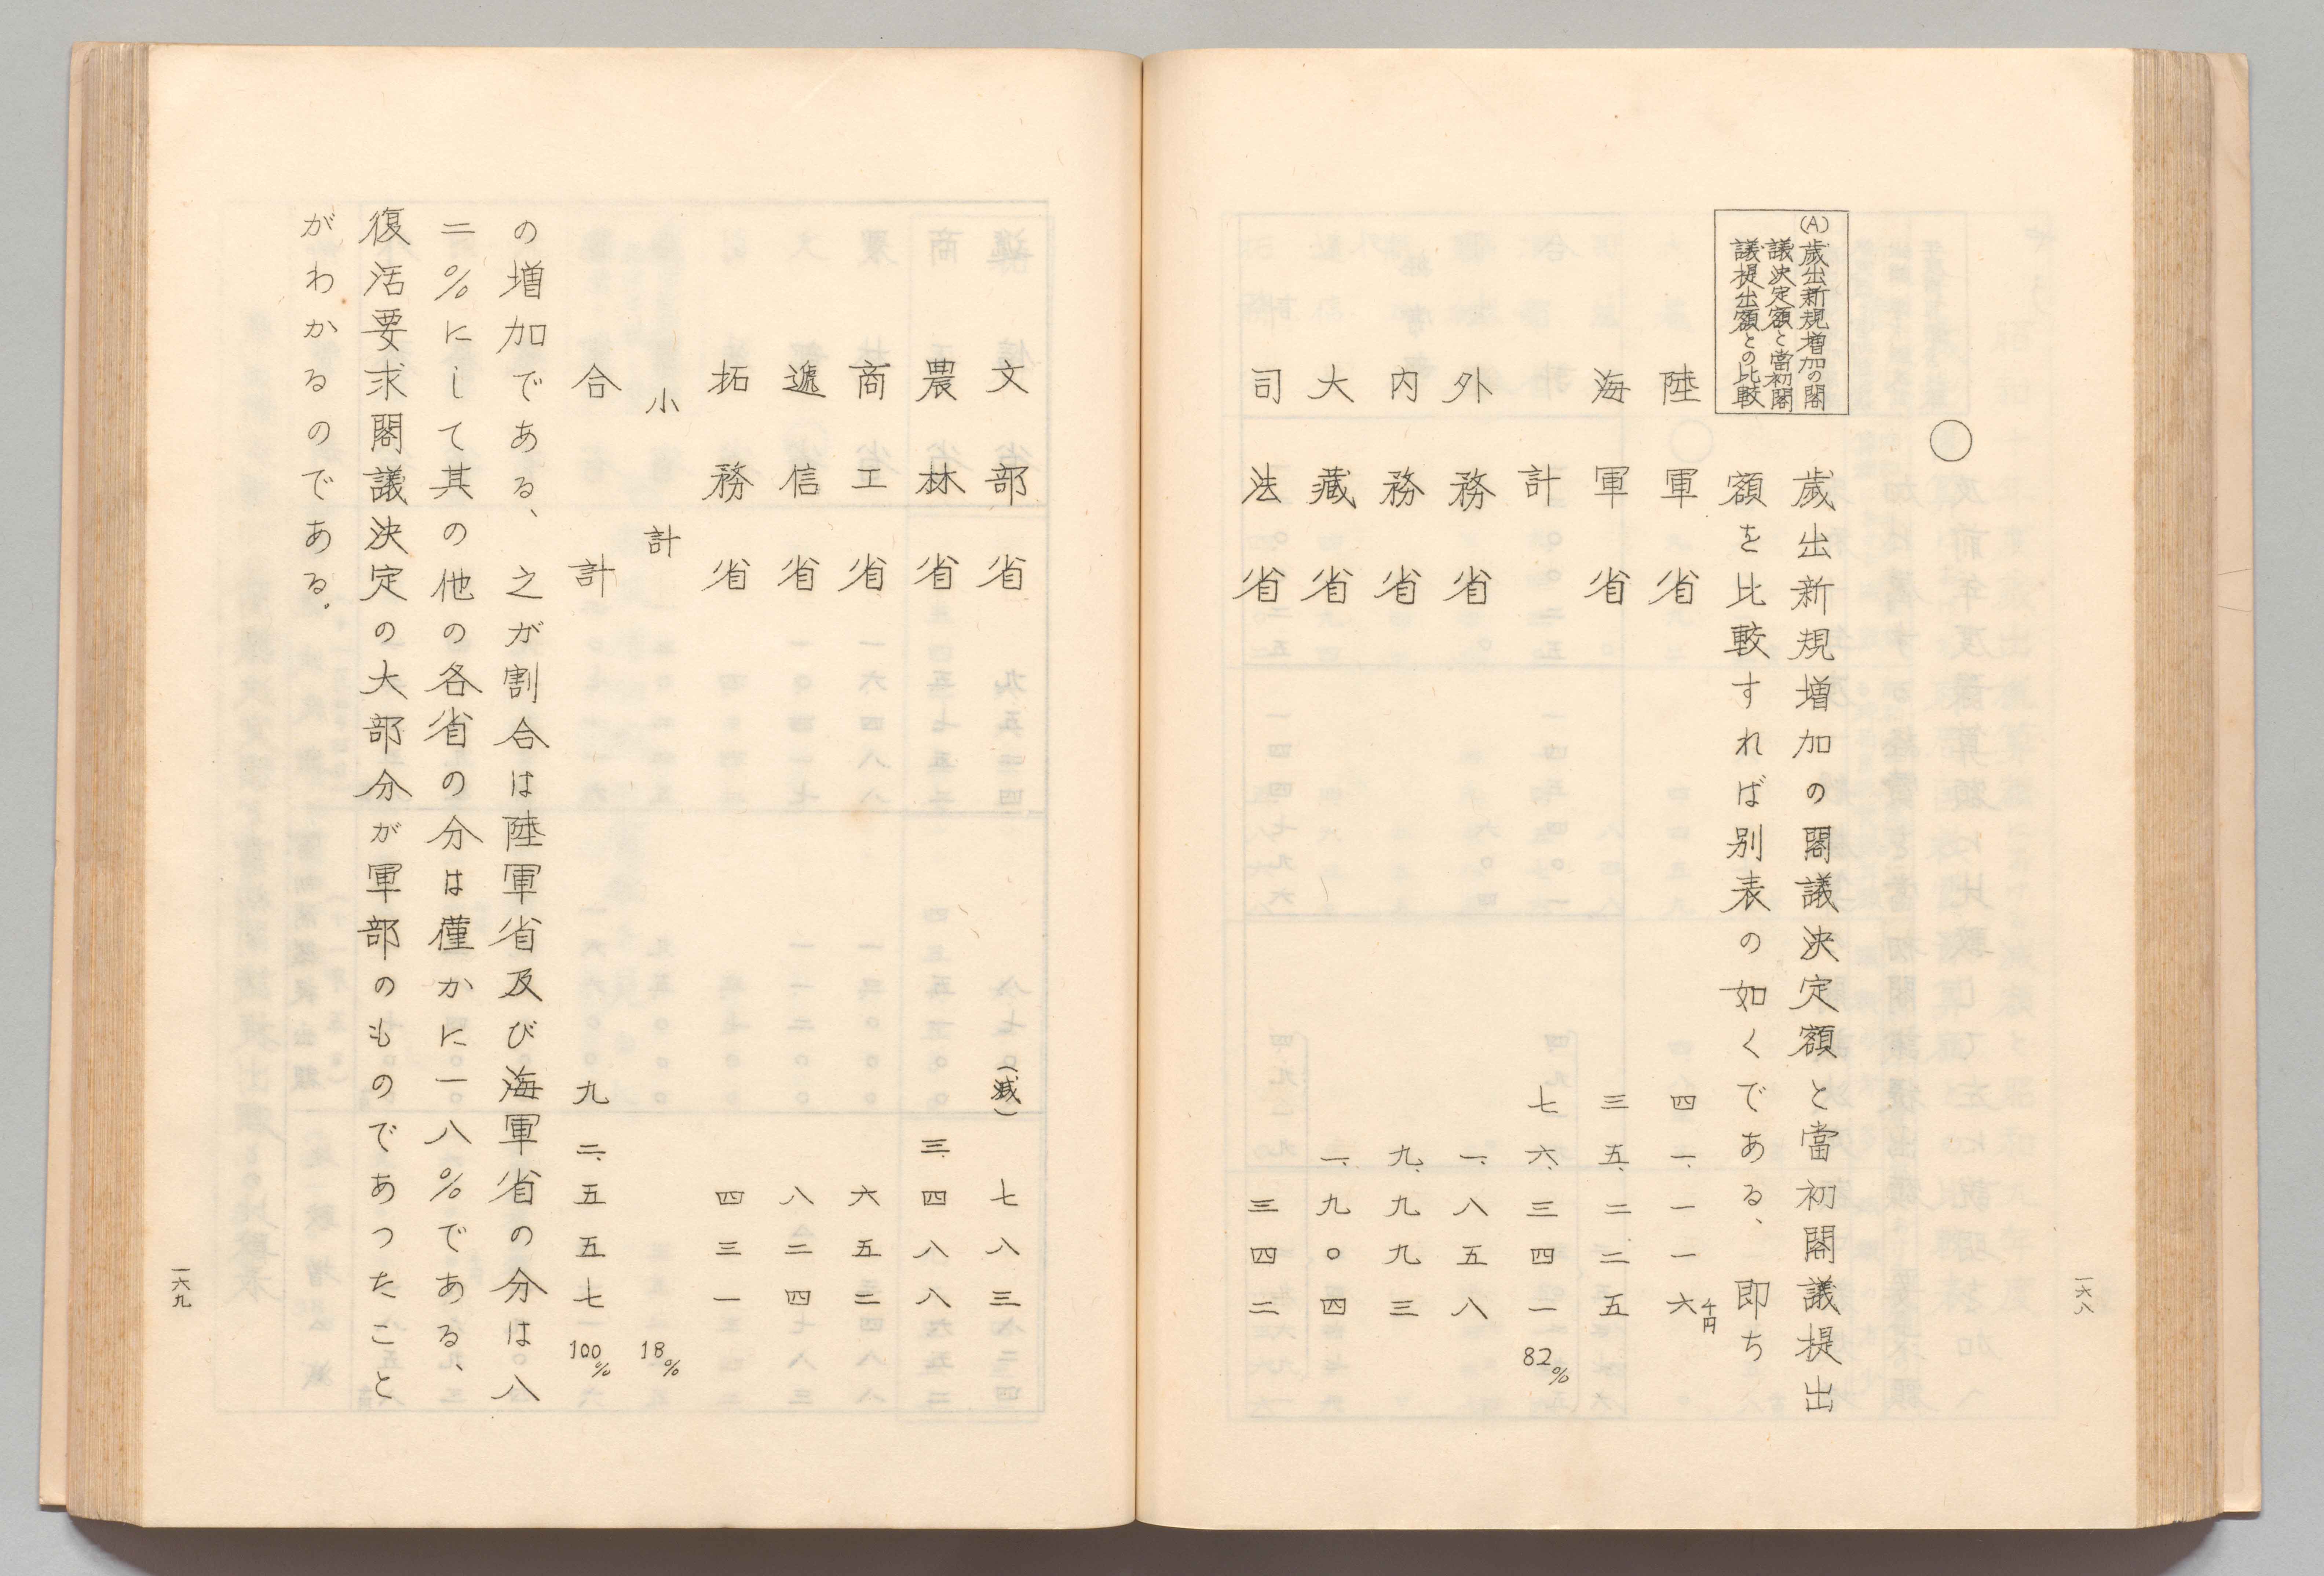 一六八
○
(A)歳出新規増加の閣
議決定額と當初閣
議提出額との比較
歳出新規増加の閣議決定額と當初閣議提出
額を比較すれば別表の如くである、即ち
陸軍省 四一、一一六千円
海軍省 三五、二二五
計 七六、三四一 82%
外務省 一、八五八
内務省 九、九九三
大藏省 一、九〇四
司法省 三四二
文部省 (減) 七八三
農林省 三、四八八
商工省 六五二
遞信省 八二四
拓務省 四三一
小計 18%
合計 九二、五五七 100%
の増加である、之が割合は陸軍省及び海軍省の分は八
二%にして其の他の各省の分は僅かに一八%である、
復活要求閣議決定の大部分が軍部のものであつたこと
がわかるのである.
一六九